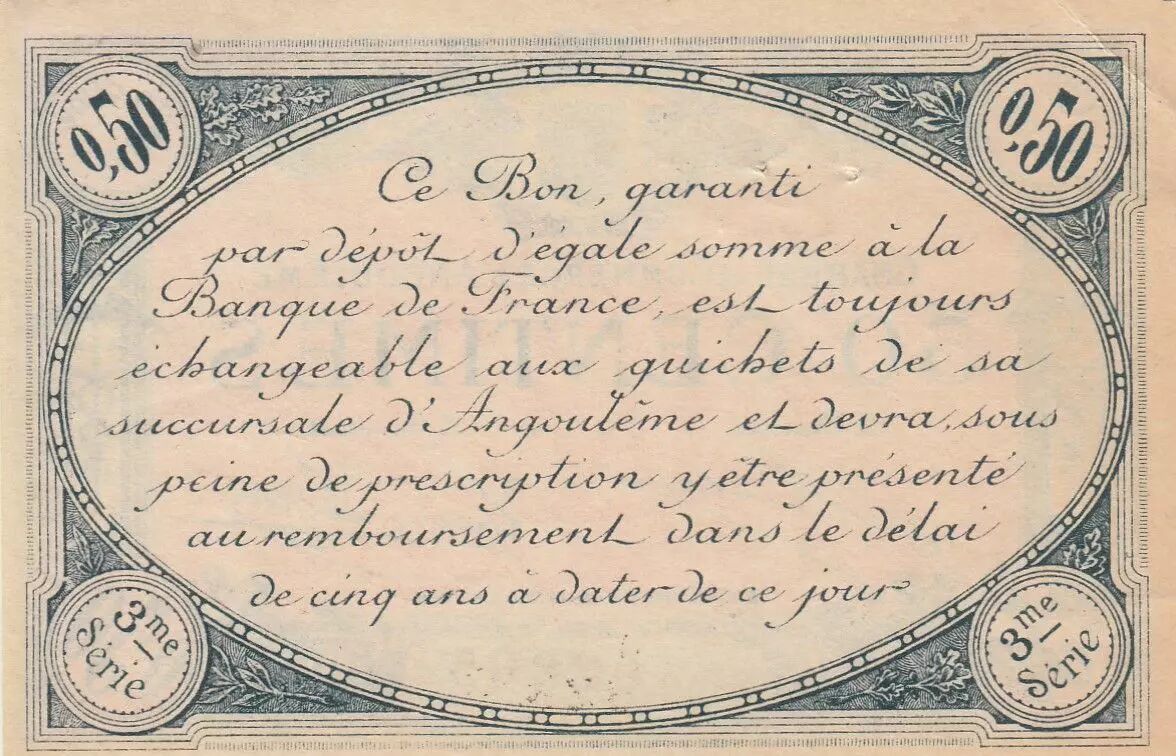 0,50
0,50
Ce Bon, garanti
par dépôt d'égale somme à la
Banque de France, est toujours
échangeable aux guichets de sa
succursale d'Angoulême et devra, sous
peine de prescription y être présenté
au remboursement dans le délai
de cinq ans à dater de ce jour
3me
Série
3me
Série